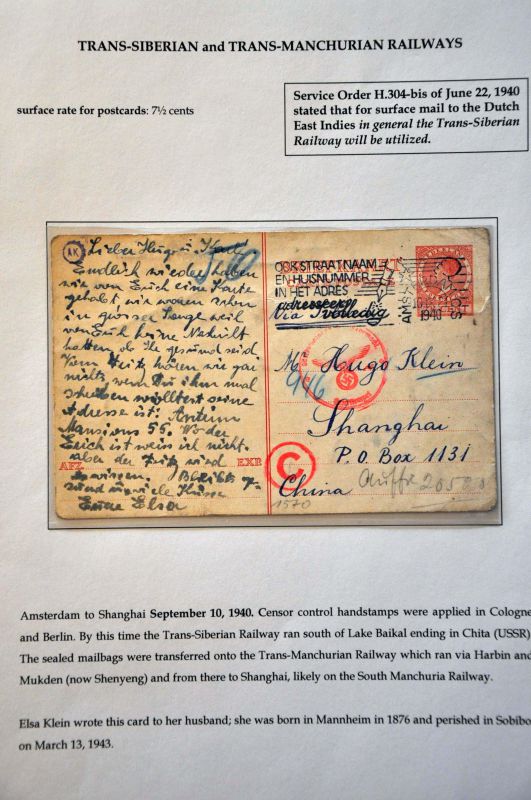 TRANS-SIBERIAN and TRANS-MANCHURIAN RAILWAYS
surface rate for postcards: 7½ cents
Service Order H.304-bis of June 22, 1940
stated that for surface mail to the Dutch
East Indies in general the Trans-Siberian
Railway will be utilized.
AK
Lieber Hugo u. Karl
Endlich wieder haben
wir von Euch eine Karte
gehabt, wir waren schon
in grosser Sorge weil
von Euch keine Nachricht
hatten ob Ihr gesund seid.
Vom Fritz hören wir gar
nichts, wenn Du ihm mal
schreiben wolltest seine
Adresse ist:
Mansions 55.
Euch ist weiss ich nicht.
aber der Fritz wird
wissen. Bleibt ge-
sund u. viele Küsse
Eure Elsa
AFZ. EXP.
OOK STRAATNAAM
EN HUISNUMMER
IN HET ADRES
Via
1940
Mr Hugo Klein
Shanghai
P.O. Box 1131
China
C
1570
Amsterdam to Shanghai September 10, 1940. Censor control handstamps were applied in Cologne
and Berlin. By this time the Trans-Siberian Railway ran south of Lake Baikal ending in Chita (USSR)
The sealed mailbags were transferred onto the Trans-Manchurian Railway which ran via Harbin and
Mukden (now Shenyeng) and from there to Shanghai, likely on the South Manchuria Railway.
Elsa Klein wrote this card to her husband; she was born in Mannheim in 1876 and perished in Sobibo
on March 13, 1943.